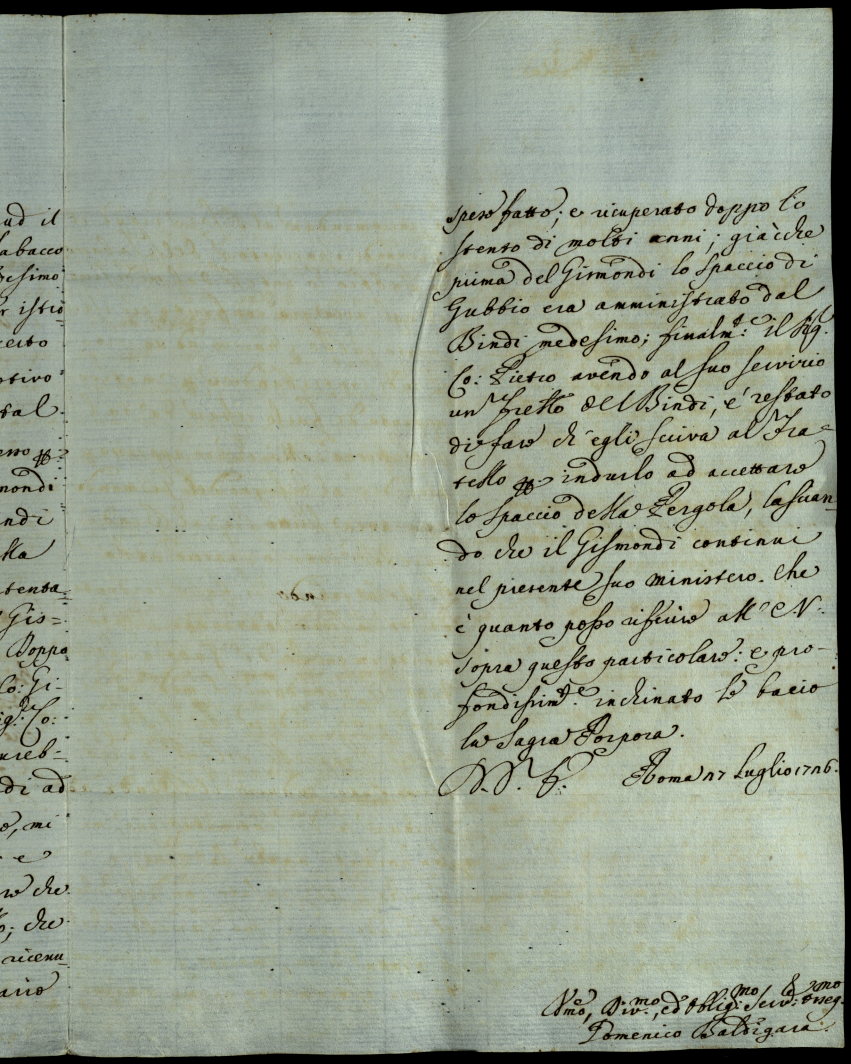 ud il
abacco
esimo
r istro
certo
otivo
tal
erno
mondi
ndi
lla
tenta=
Gis=
Doppo
Co: Gi-
ig.r Co:
ureb=
di ad
o, mi
e
re che
o; che
ricenu=
ario
spese fatto; e ricuperato doppo lo
stento di molti anni; giàcche
prima del Gismondi lo Spaccio di
Gubbio era amministrato dal
Bindi medesimo; finalm.te il Sig.r
Co: Pietro avendo al suo servizio
un Fratello del Bindi, è restato
di fare ch'egli scriva al Fra=
tello per indurlo ad accettare
lo Spaccio della Pergola, lascian=
do che il Gismondi continui
nel presente suo ministero. Che
è quanto posso riferire all' E.V.
sopra questo particolare: e pro=
fondissim.te inchinato le bacio
la Sagra Porpora.
D. V. E. Roma 27 Luglio 1726.
Vmo, Div.mo, ed Oblig.mo Serv.e Osseq.mo
Domenico Baldigara